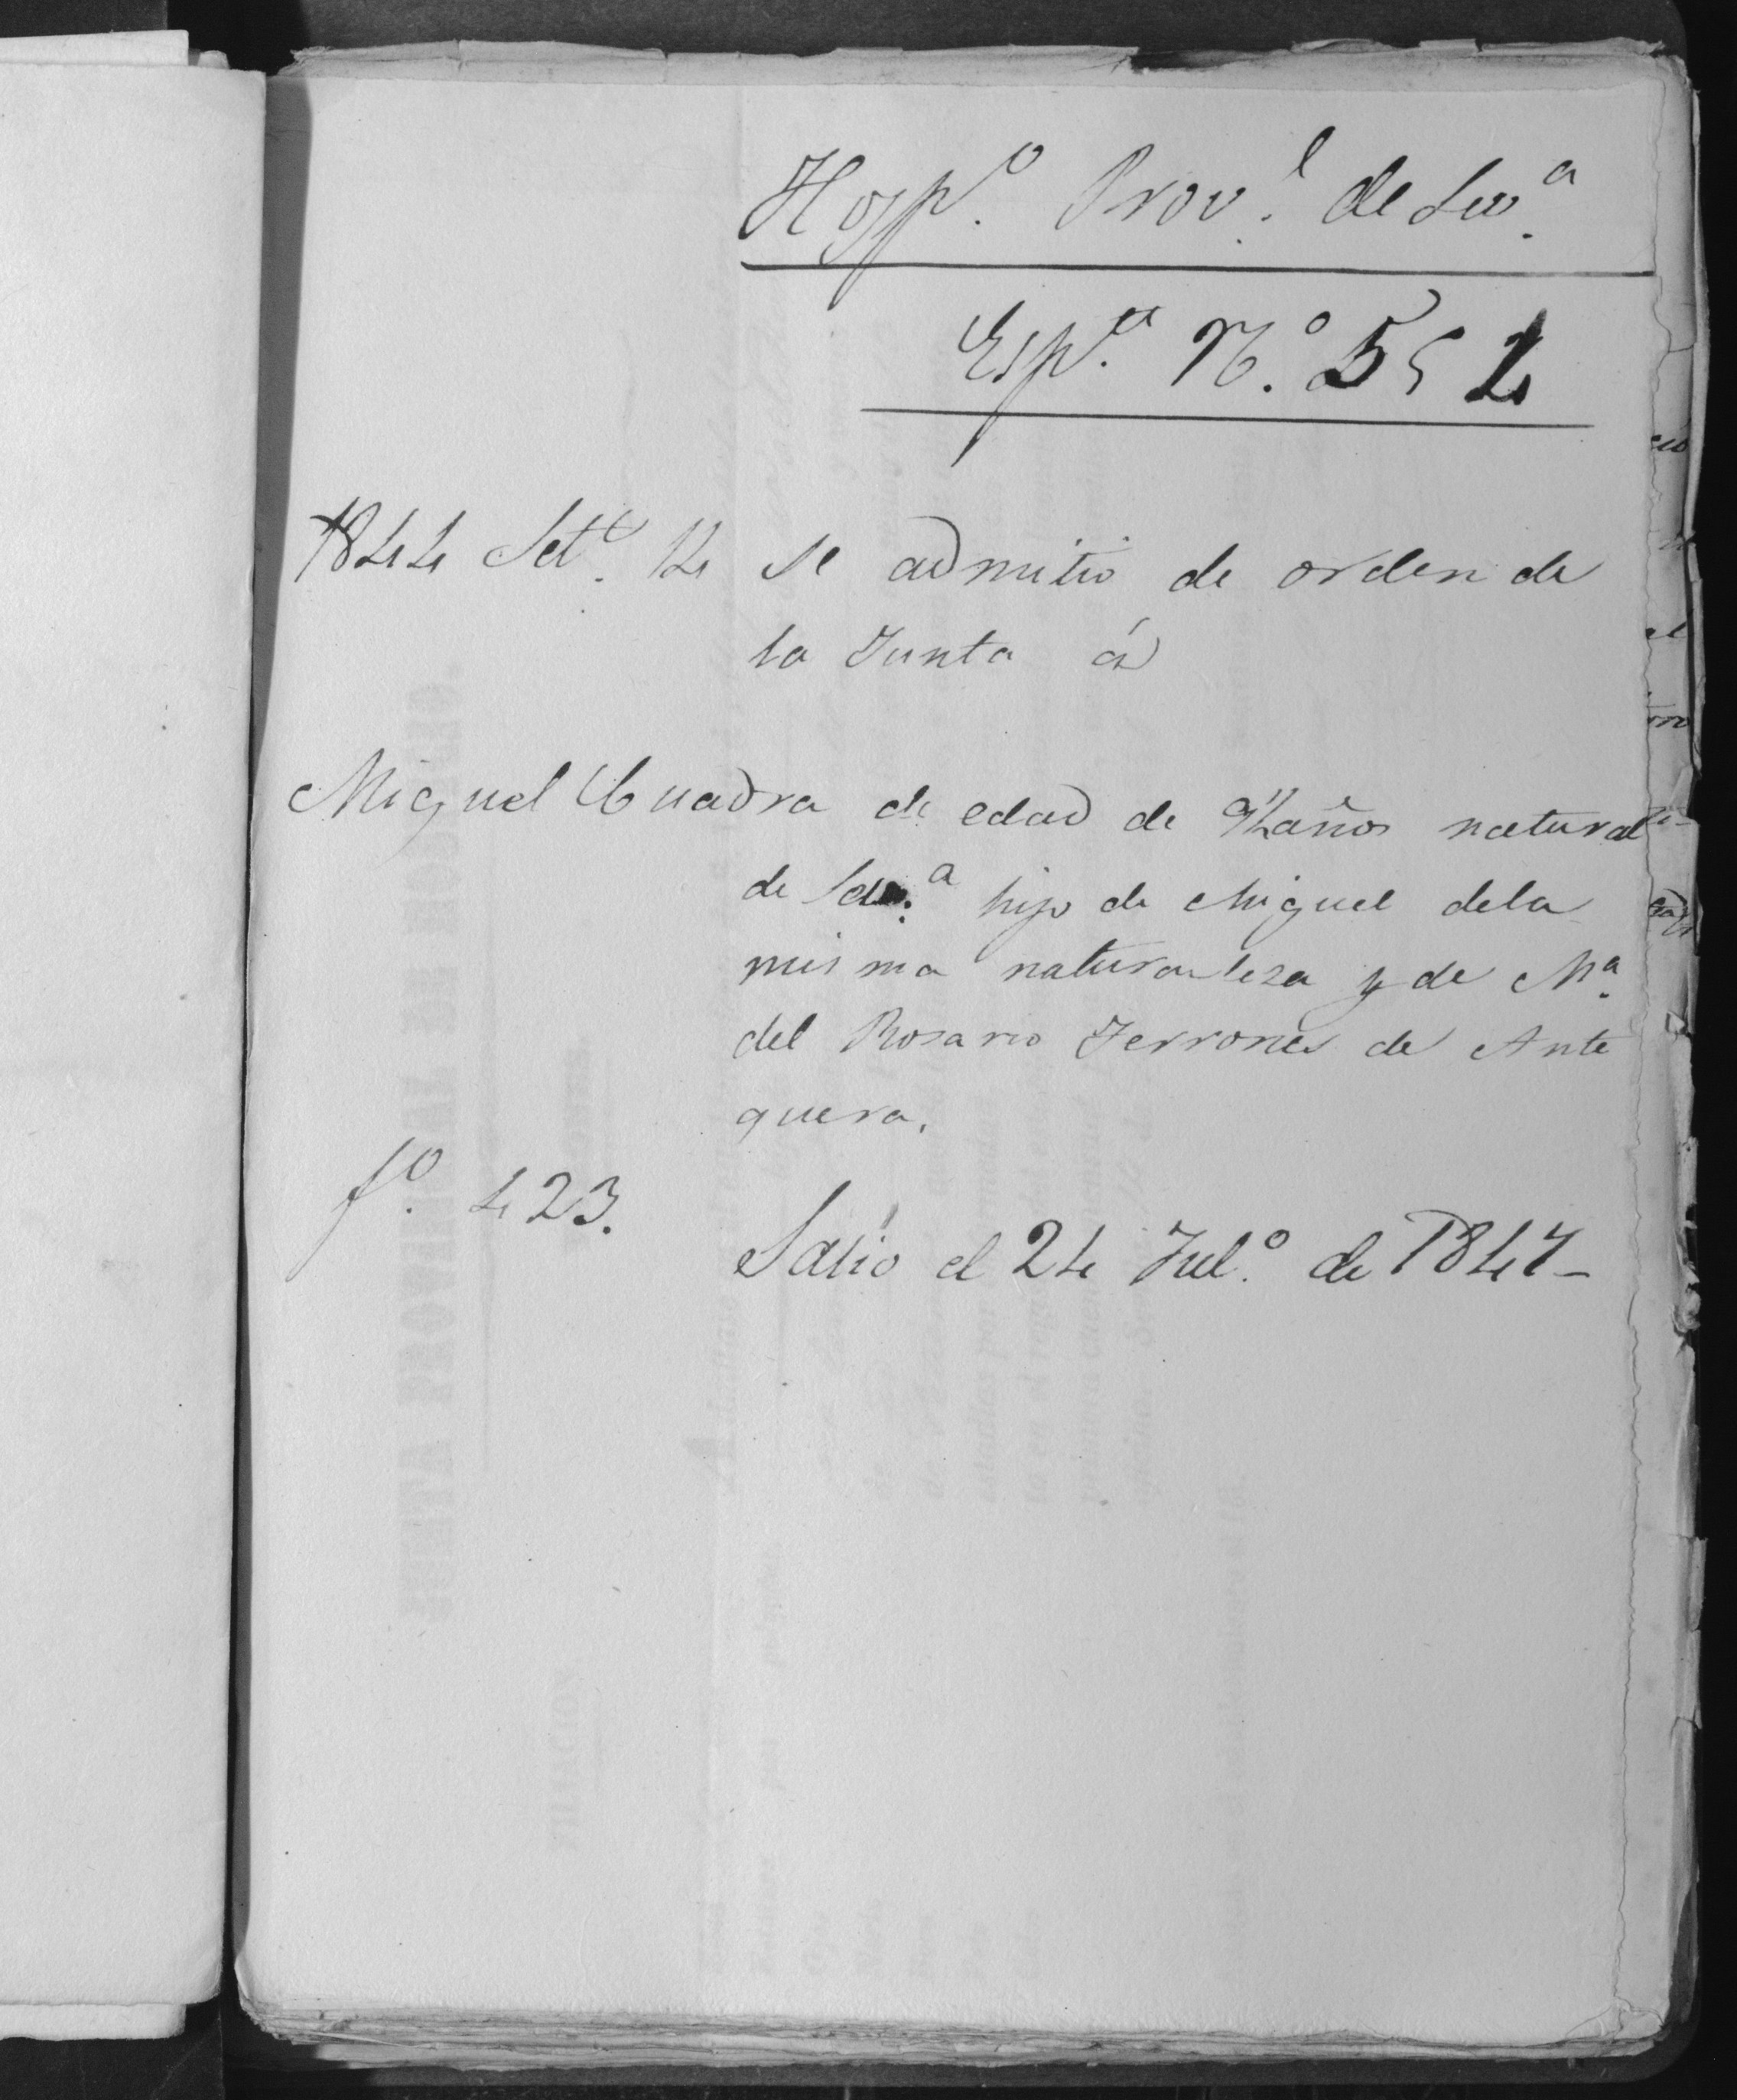 Hosp.º Prov.l de Sev.a
Esp.te N.º 551
1844 Set.e 14 se admitio de orden de
la Junta á
Miguel Cuadra de edad de 9½ años natural
de Sev.a hijo de Miguel dela
misma naturaleza y de M.a
del Rosario Terrones de Ante
quera.
f.º 423.
Salió el 24 Jul.º de 1847-